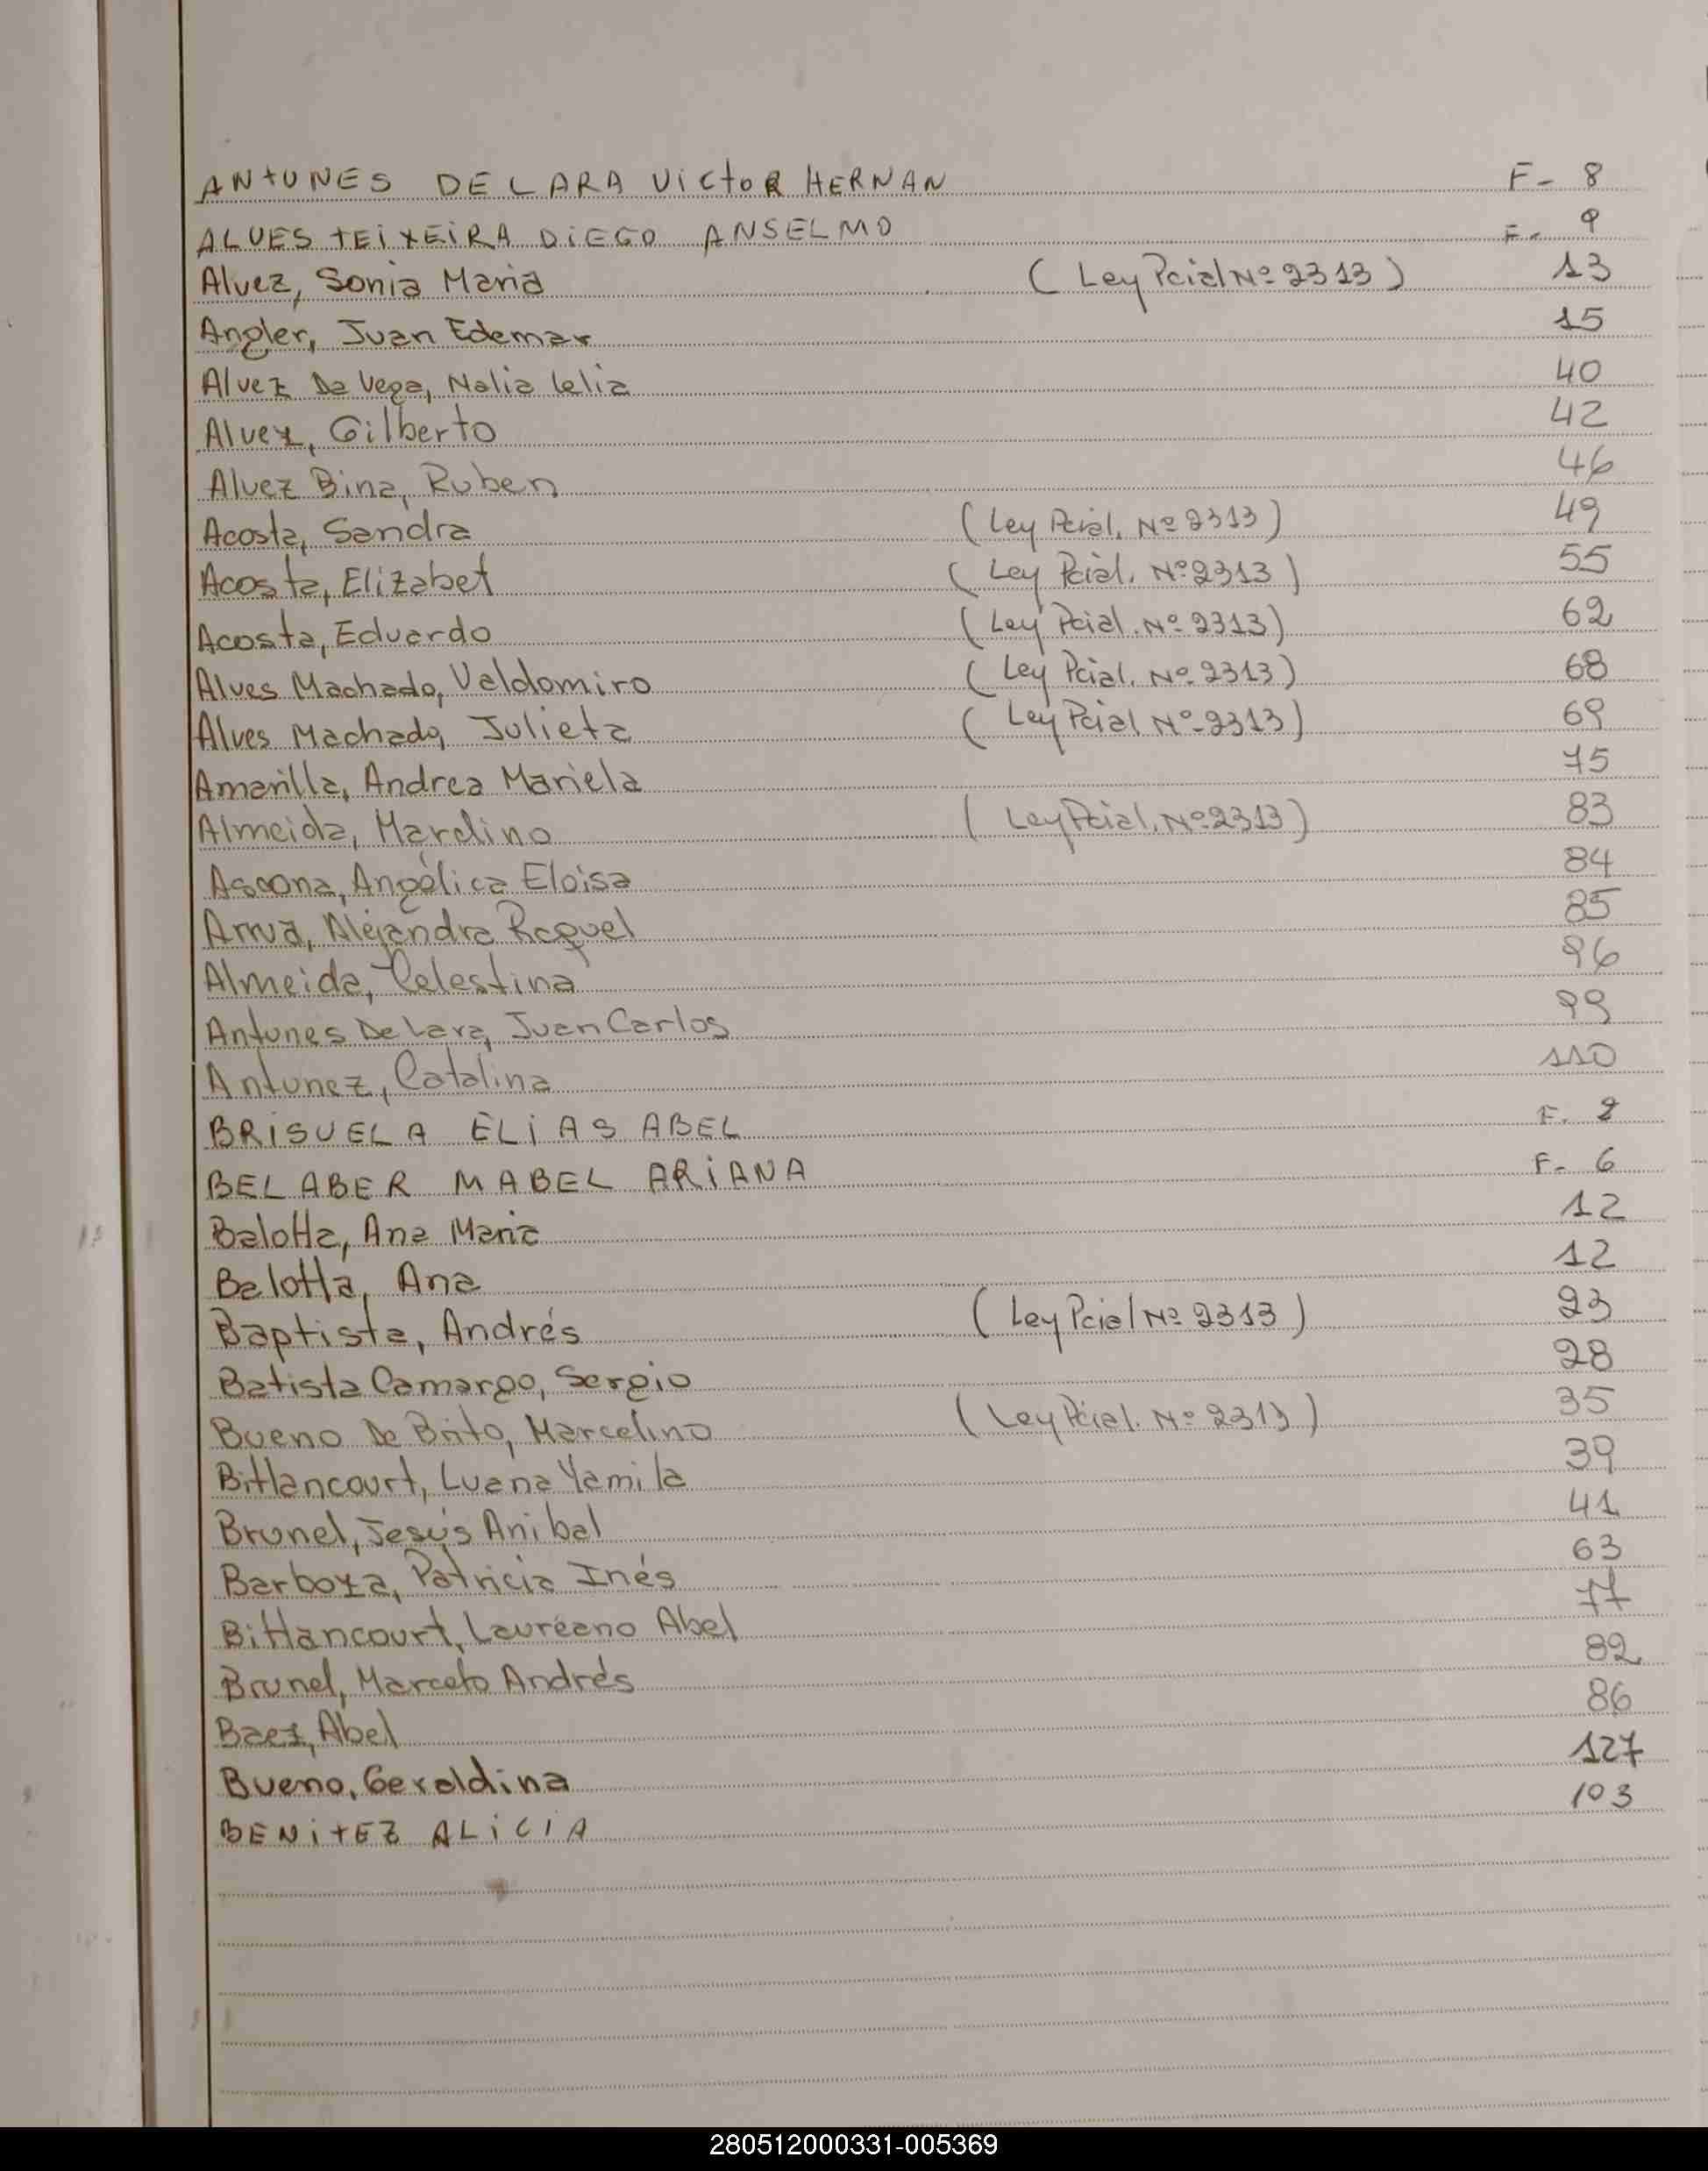 ANTUNES DE LARA VICTOR HERNAN F- 8
ALVES TEIXEIRA DIEGO ANSELMO F- 9
Alvez, Sonia Maria (Ley Pcial Nº 2313) 13
Angler, Juan Edemar 15
Alvez De Vega, Nelia Lelia 40
Alvez, Gilberto 42
Alvez Bina, Ruben 46
Acosta, Sandra (Ley Pcial. Nº 2313) 49
Acosta, Elizabet (Ley Pcial. Nº 2313) 55
Acosta, Eduardo (Ley Pcial. Nº 2313) 62
Alves Machado, Valdomiro (Ley Pcial. Nº 2313) 68
Alves Machado, Julieta (Ley Pcial Nº 2313) 69
Amarilla, Andrea Mariela 75
Almeida, Marcelino (Ley Pcial. Nº 2313) 83
Ascona, Angélica Eloisa 84
Arrua, Alejandra Raquel 85
Almeida, Celestina 96
Antunes De Lara, Juan Carlos 99
Antunez, Catalina 110
BRISUELA ELIAS ABEL F. 2
BELABER MABEL ARIANA F- 6
Balotta, Ana Maria 12
Belotta, Ana 12
Baptista, Andrés (Ley Pcial Nº 2313) 23
Batista Camargo, Sergio 28
Bueno De Brito, Marcelino (Ley Pcial. Nº 2313) 35
Bittancourt, Luana Yamila 39
Brunel, Jesús Anibal 41
Barboza, Patricia Inés 63
Bittancourt, Laureano Abel 77
Brunel, Marcelo Andrés 82
Baez, Abel 86
Bueno, Geraldina 127
BENITEZ ALICIA 103
280512000331-005369